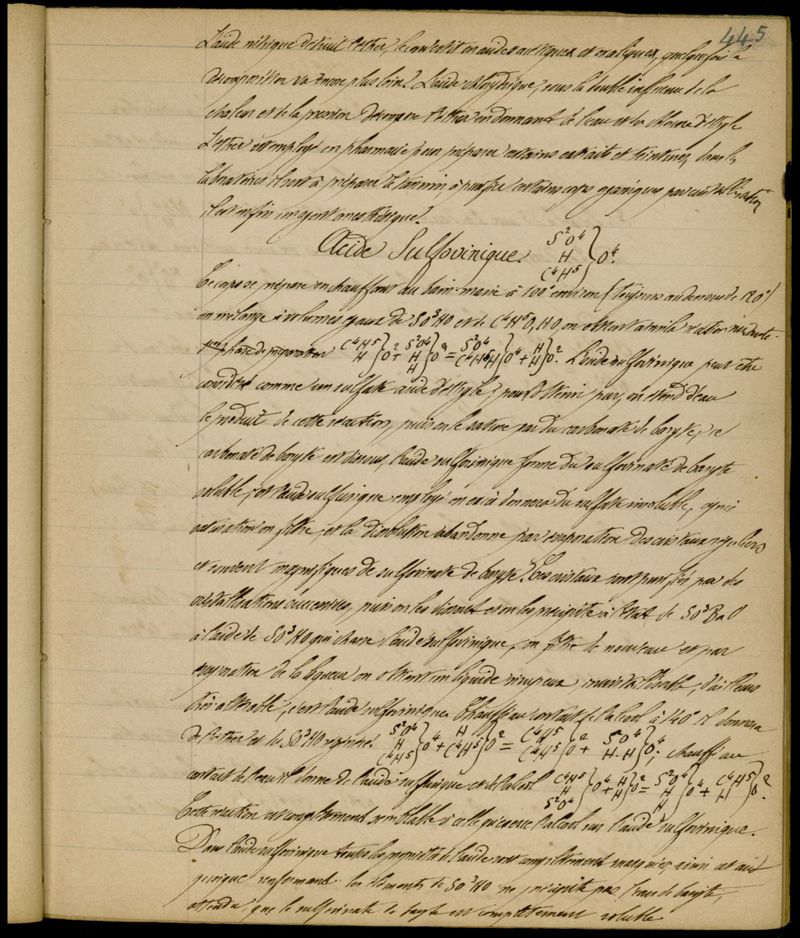 445
L'acide nitrique détruit l'éther, le convertit en acides acétiques et oxaliques, quelquefois la
décomposition va encore plus loin. L'acide chlorhydrique, sous la double influence de la
chaleur et de la pression décompose l'éther en donnant de l'eau et du chlorure d'éthyle
L'éther est employé en pharmacie pour préparer certains extraits et teintures, dans les
laboratoires il sert à préparer le tannin, à purifier certains corps organiques par cristallisation
il est enfin un agent anesthésique.
Acide Sulfovinique. S²O⁴ H C⁴H⁵ } O⁴.
Ce corps se prépare en chauffant au bain-marie à 100° environ (toujours au dessous de 120°)
un mélange à volumes égaux de SO³HO et de C⁴H⁵O, HO, on obtient ainsi la réaction
phase de préparation C⁴H⁵ H } O² + S²O⁴ H H } O⁴ = S²O⁴ C⁴H⁵H } O⁴ + H H } O². L'acide sulfovinique peut être
considéré comme un sulfate acide d'éthyle; pour l'obtenir pur, on étend d'eau
le produit de cette réaction, puis on le sature par du carbonate de baryte, ce
carbonate de baryte est dissous, l'acide sulfovinique forme du sulfovinate de baryte
soluble, et l'acide sulfurique employé en excès donnera du sulfate insoluble, après
saturation on filtre, et la dissolution abandonne par évaporation des cristaux réguliers
et souvent magnifiques de sulfovinate de baryte. Ces cristaux sont purifiés par des
cristallisations successives, puis on les dissout et on les précipite à l'état de SO³BaO
à l'aide de SO³HO qui chasse l'acide sulfovinique, on filtre de nouveau et par
évaporation de la liqueur on obtient un liquide sirupeux, incristallisable, d'ailleurs
très altérable, c'est l'acide sulfovinique. Chauffé au contact de l'alcool à 140° il donnera
de l'éther et de SO³HO régénéré. S²O⁴ H C⁴H⁵ } O⁴ + H C⁴H⁵ } O² = C⁴H⁵ C⁴H⁵ } O² + S²O⁴ H.H } O⁴; chauffé au
contact de l'eau il donne de l'acide sulfurique et de l'alcool C⁴H⁵ H S²O⁴ } O⁴ + H H } O² = S²O⁴ H H } O⁴ + C⁴H⁵ H } O².
Cette réaction est complètement semblable à celle qu'exerce l'alcool sur l'acide sulfovinique.
Dans l'acide sulfovinique toutes les propriétés de l'acide sont complètement masquées, ainsi cet acide
quoique renfermant les éléments de SO³HO ne précipite pas l'eau de baryte,
attendu que le sulfovinate de baryte est complètement soluble